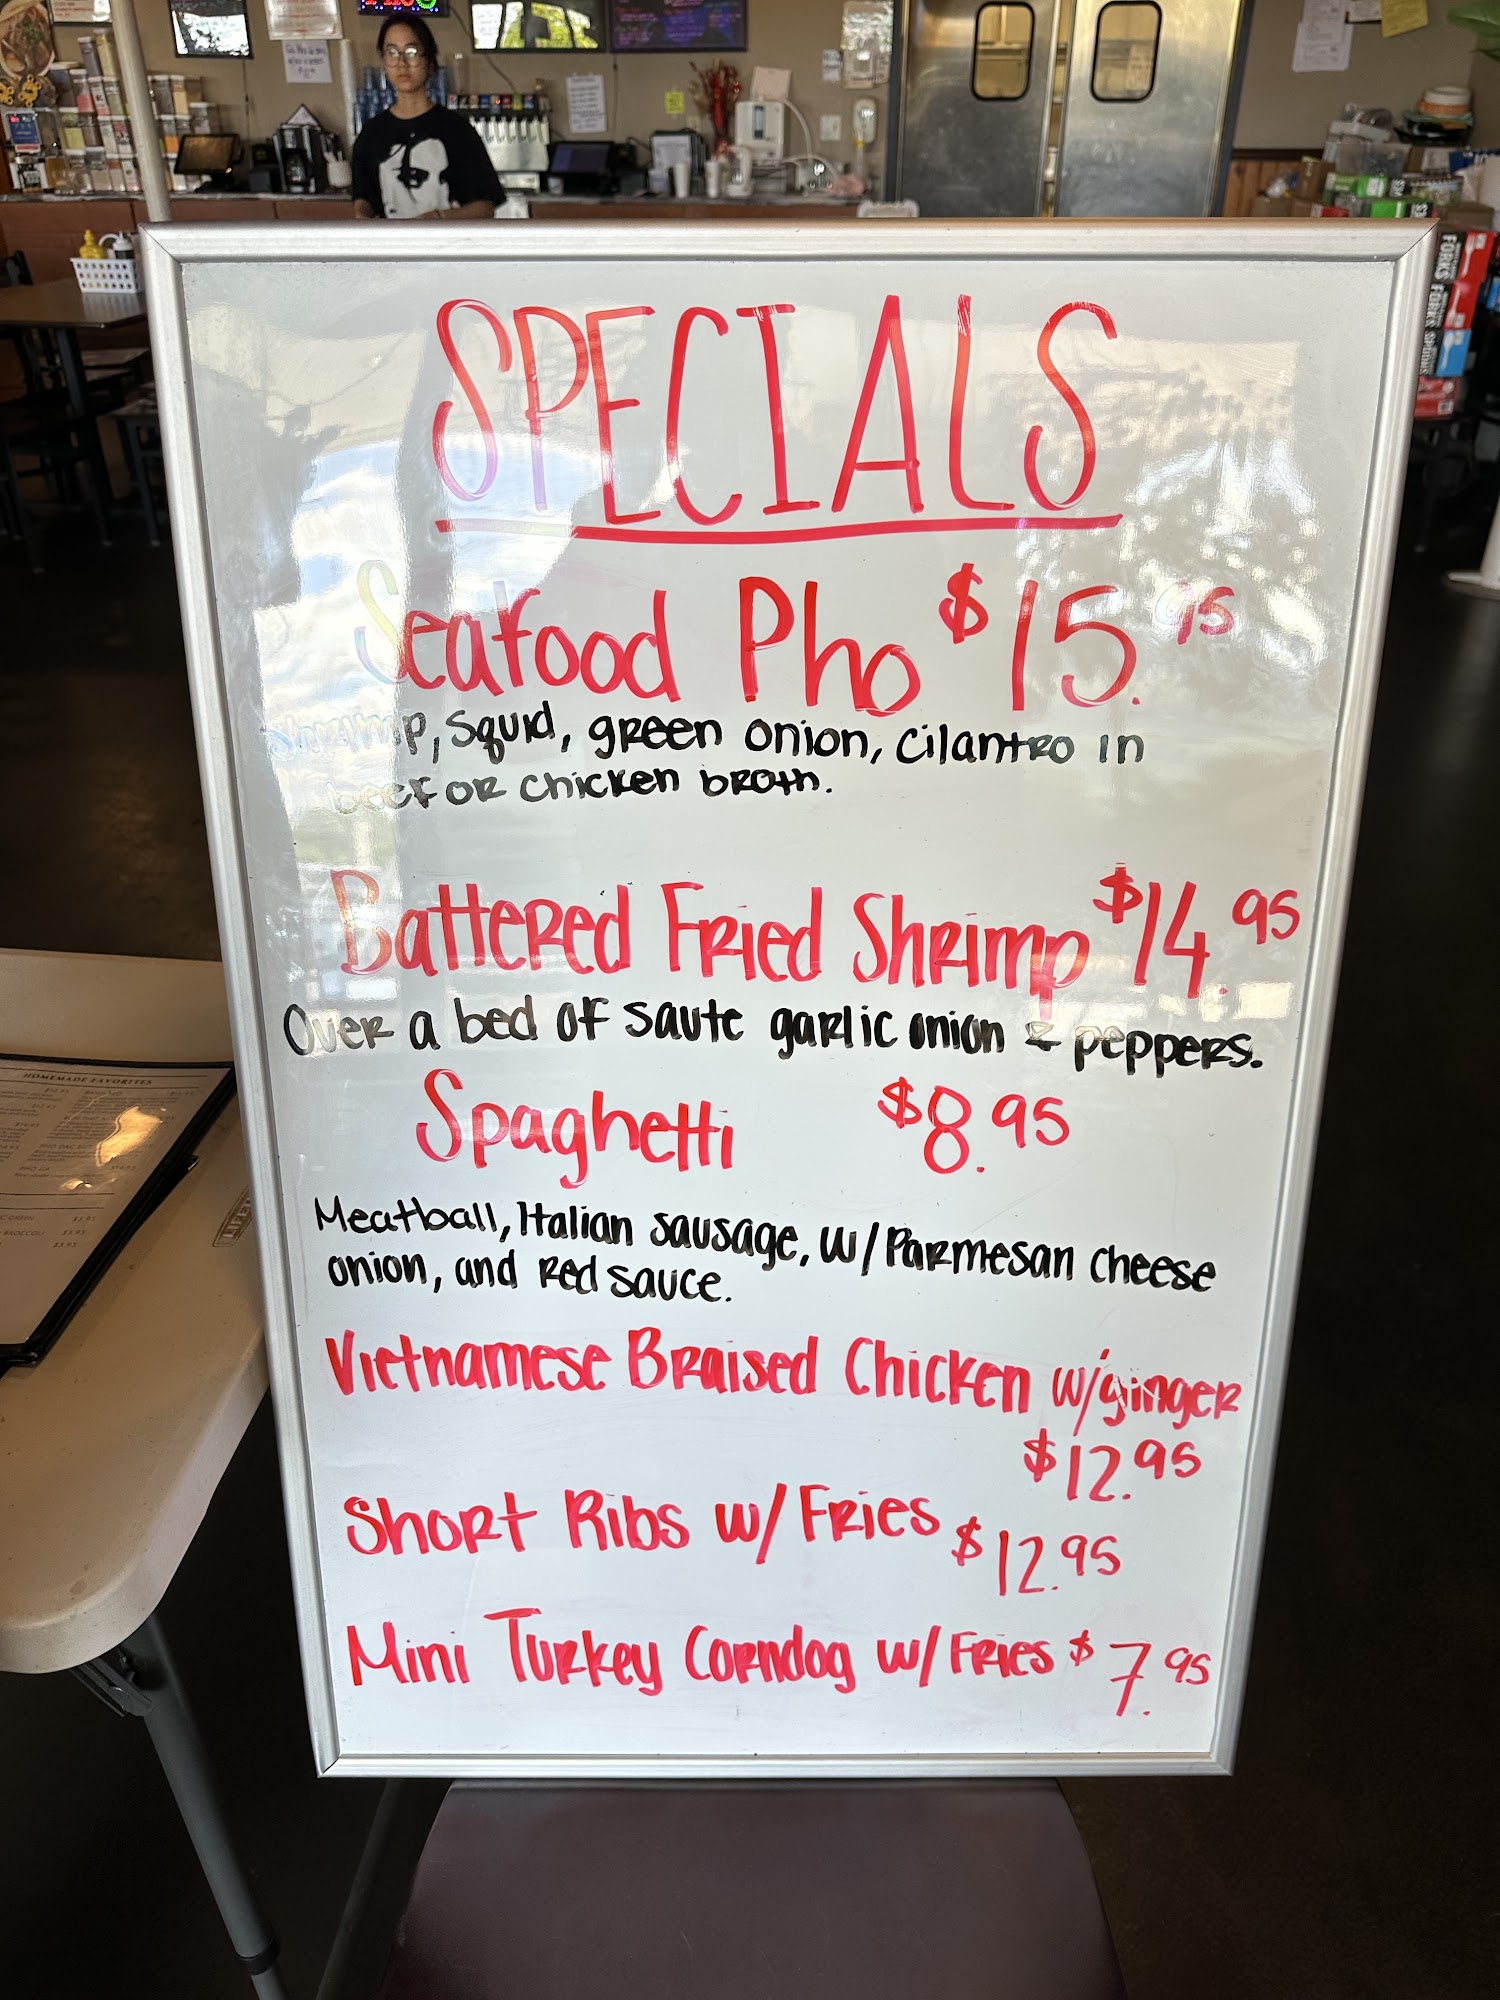 SPECIALS
Seafood Pho $15.95
shrimp, squid, green onion, cilantro in
beef or chicken broth.
Battered Fried Shrimp $14.95
Over a bed of saute garlic onion & peppers.
Spaghetti $8.95
Meatball, Italian sausage, w/ Parmesan cheese
onion, and red sauce.
Vietnamese Braised Chicken w/ginger
$12.95
Short Ribs w/ Fries $12.95
Mini Turkey Corndog w/ Fries $7.95
HOMEMADE FAVORITES
FORKS
FORKS